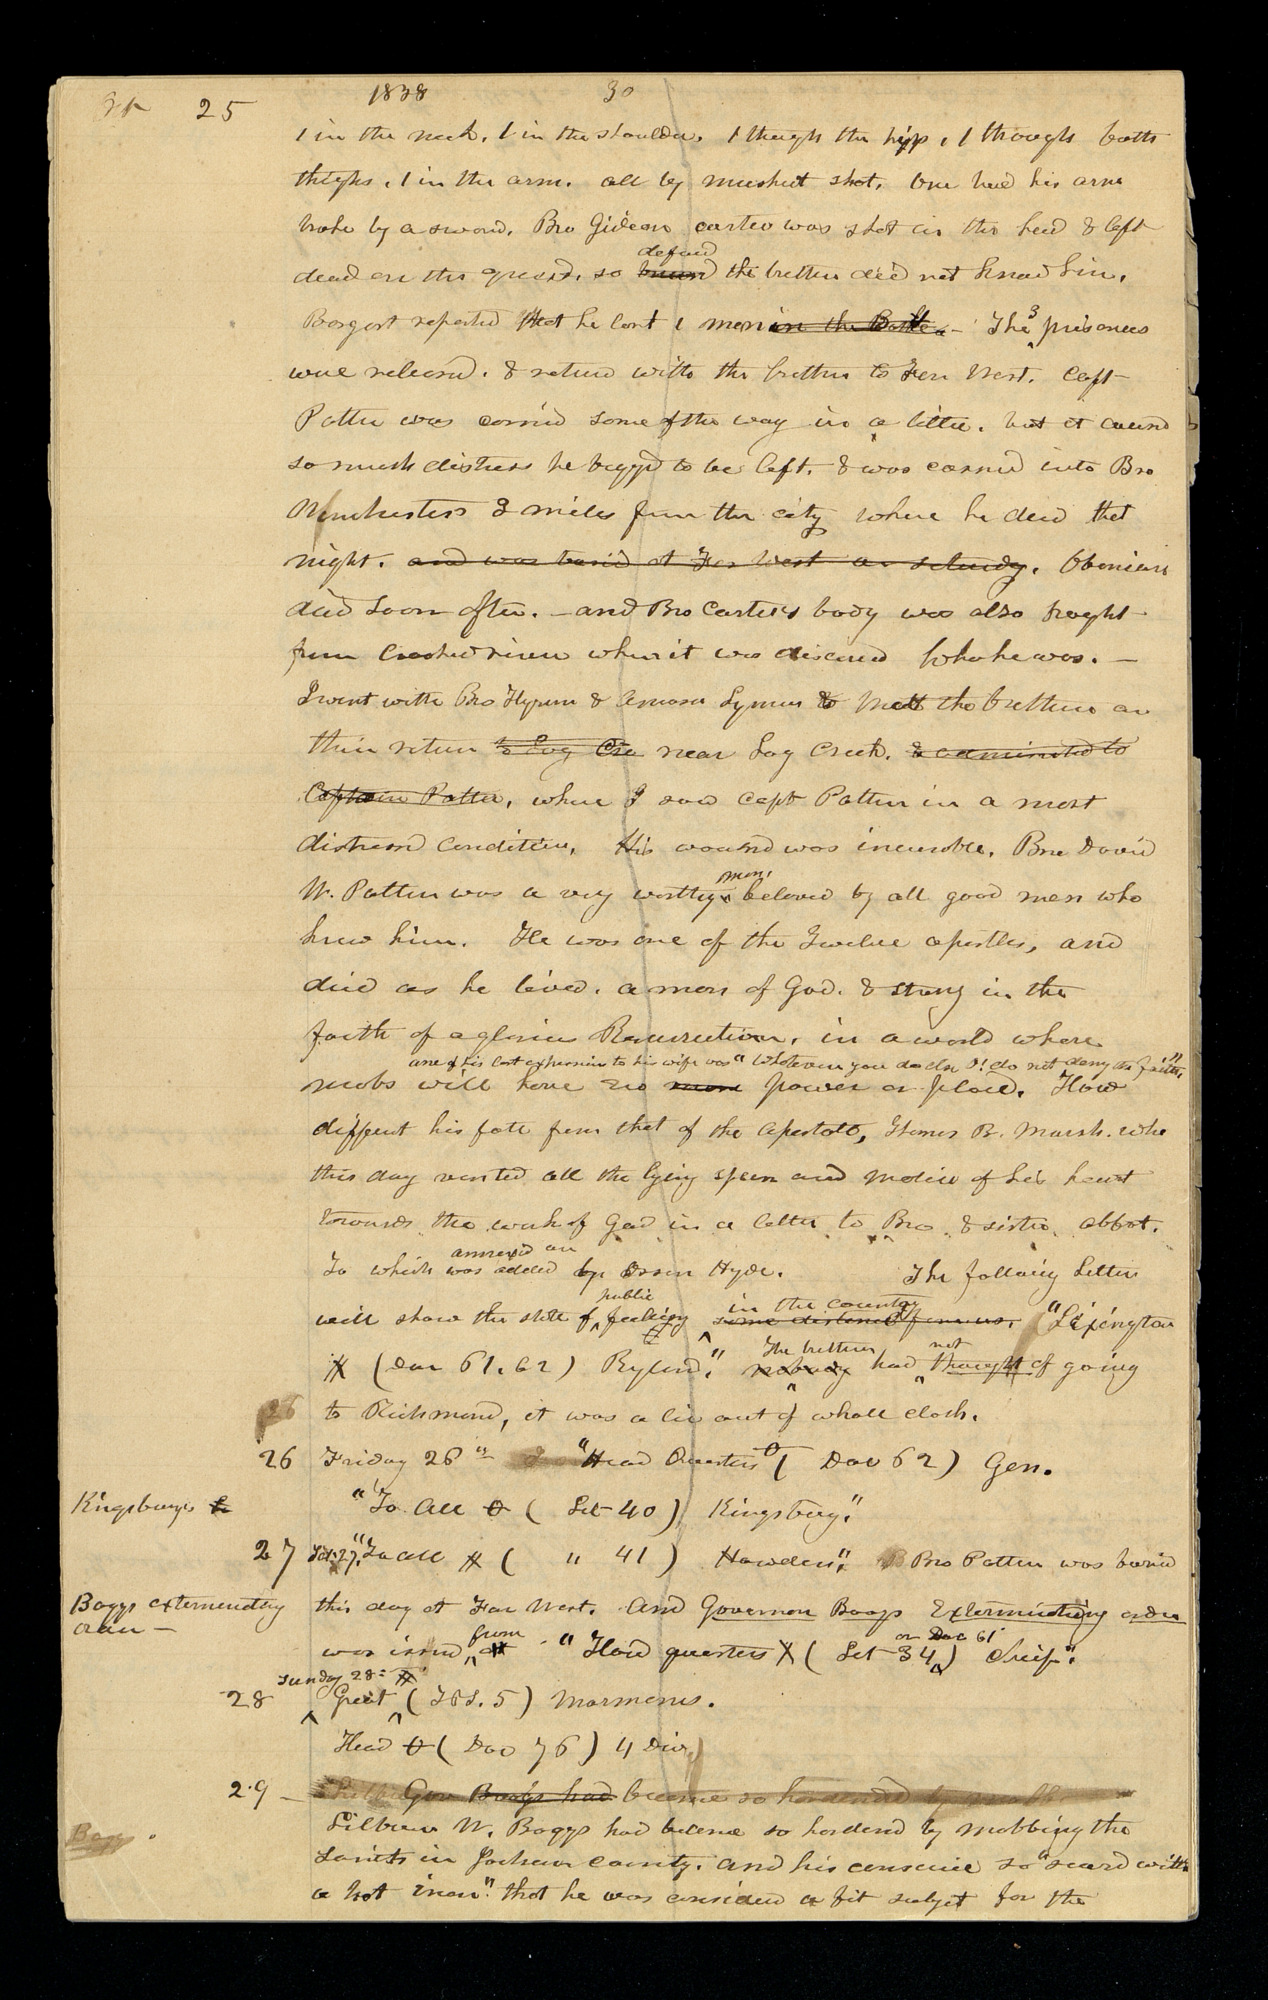 25 1838 30
1 in the neck, 1 in the shoulder. 1 though the hipp, 1 through both
thighs, 1 in the arm. all by musket shot. One had his arm
broke by a sword. Bro Gideon carter was shot in the head & left
dead on the ground, so defaced the bretten did not know him.
Bogart reported that he lost 1 man in the Battle – The 3 prisoners
were released. & return with the brettrn to Far West. Capt
Patten was carried some of the way in a litter. but it caused
so much distress he begged to be left. & was carried into Bro
Winchesters 3 miles from the city where he died that
night. and was buried at Far West on saturday. Obonion
died soon after. – and Bro Carter's body was also brought
from Crooked river when it was discoverd who he was. –
I went with Bro Hyrum & Amasa Lyman to meet the brettrn on
their return to Log Cre near Log Creek. & administed to
Captain Patten, where I saw Capt Patten in a most
distressed condition. His wound was incurable. Bro David
W. Patten was a very worthy man, beloved by all good men who
knew him. He was one of the Twelve apostles, and
died as he lived. a man of God. & strong in the
faith of a glorious Resurrection, in a world where
one of his last expression to his wife was "Whatever you do else O! do not deny the faith."
mobs will have no more power or place. How
diffrent his fate from that of the apostate, Thomas B. Marsh. who
this day vented all the lying spleen and malice of his heart
towards the work of God in a letter to Bro & sister abbot.
To which was added annexed an by Orson Hyde. The following Letter
will show the state of public feeling in the country some distance from us. "Lexington
# (Doc 61. 62) Ryland." nobody The brettren had not thought of going
to Richmond, it was a lie out of whole cloth.
26
26 Friday 26th "Head Quarters ( Doc 62) Gen.
Kingsburys
"To all ( Let 40) Kingsbury."
27 Sat. 27, "To all # ( " 41 ) Hawden". Bro Patten was buried
Boggs exterminating order –
this day at Far West. and Governor Boggs Exterminating order
was issued at from "Head quarters # ( Let 34 or Doc 61 ) Chief".
sunday 28th #
28 Great ( T&S. 5) Mormons.
Head ( Doc 76 ) 4 Div.
29 – Gov Boggs had become so hardened by
Boggs.
Lilburn W. Boggs had become so hardend by mobbing the
saints in Jackson county. and his conscience so "seard with
a hot iron" that he was considerd a fit subjet for the